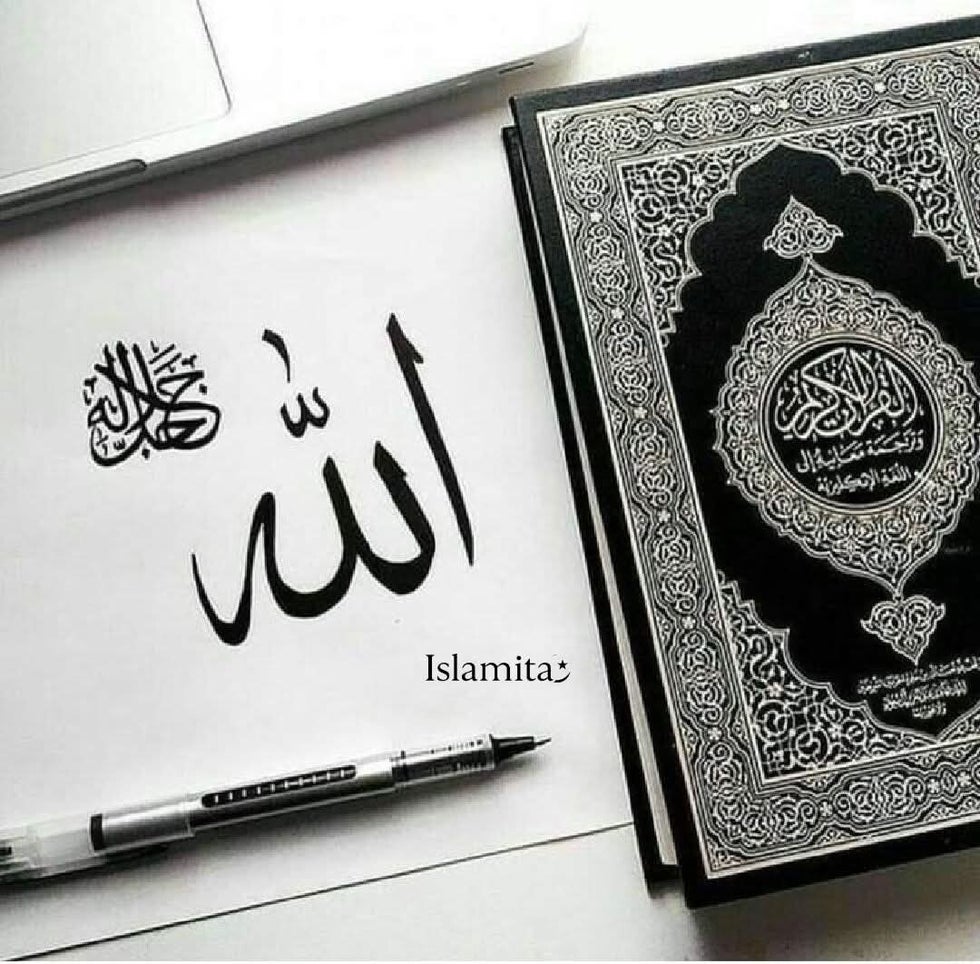 الله
جل جلاله
Islamita
القرآن الكريم
وترجمة معانيه إلى
اللغة الإنكليزية